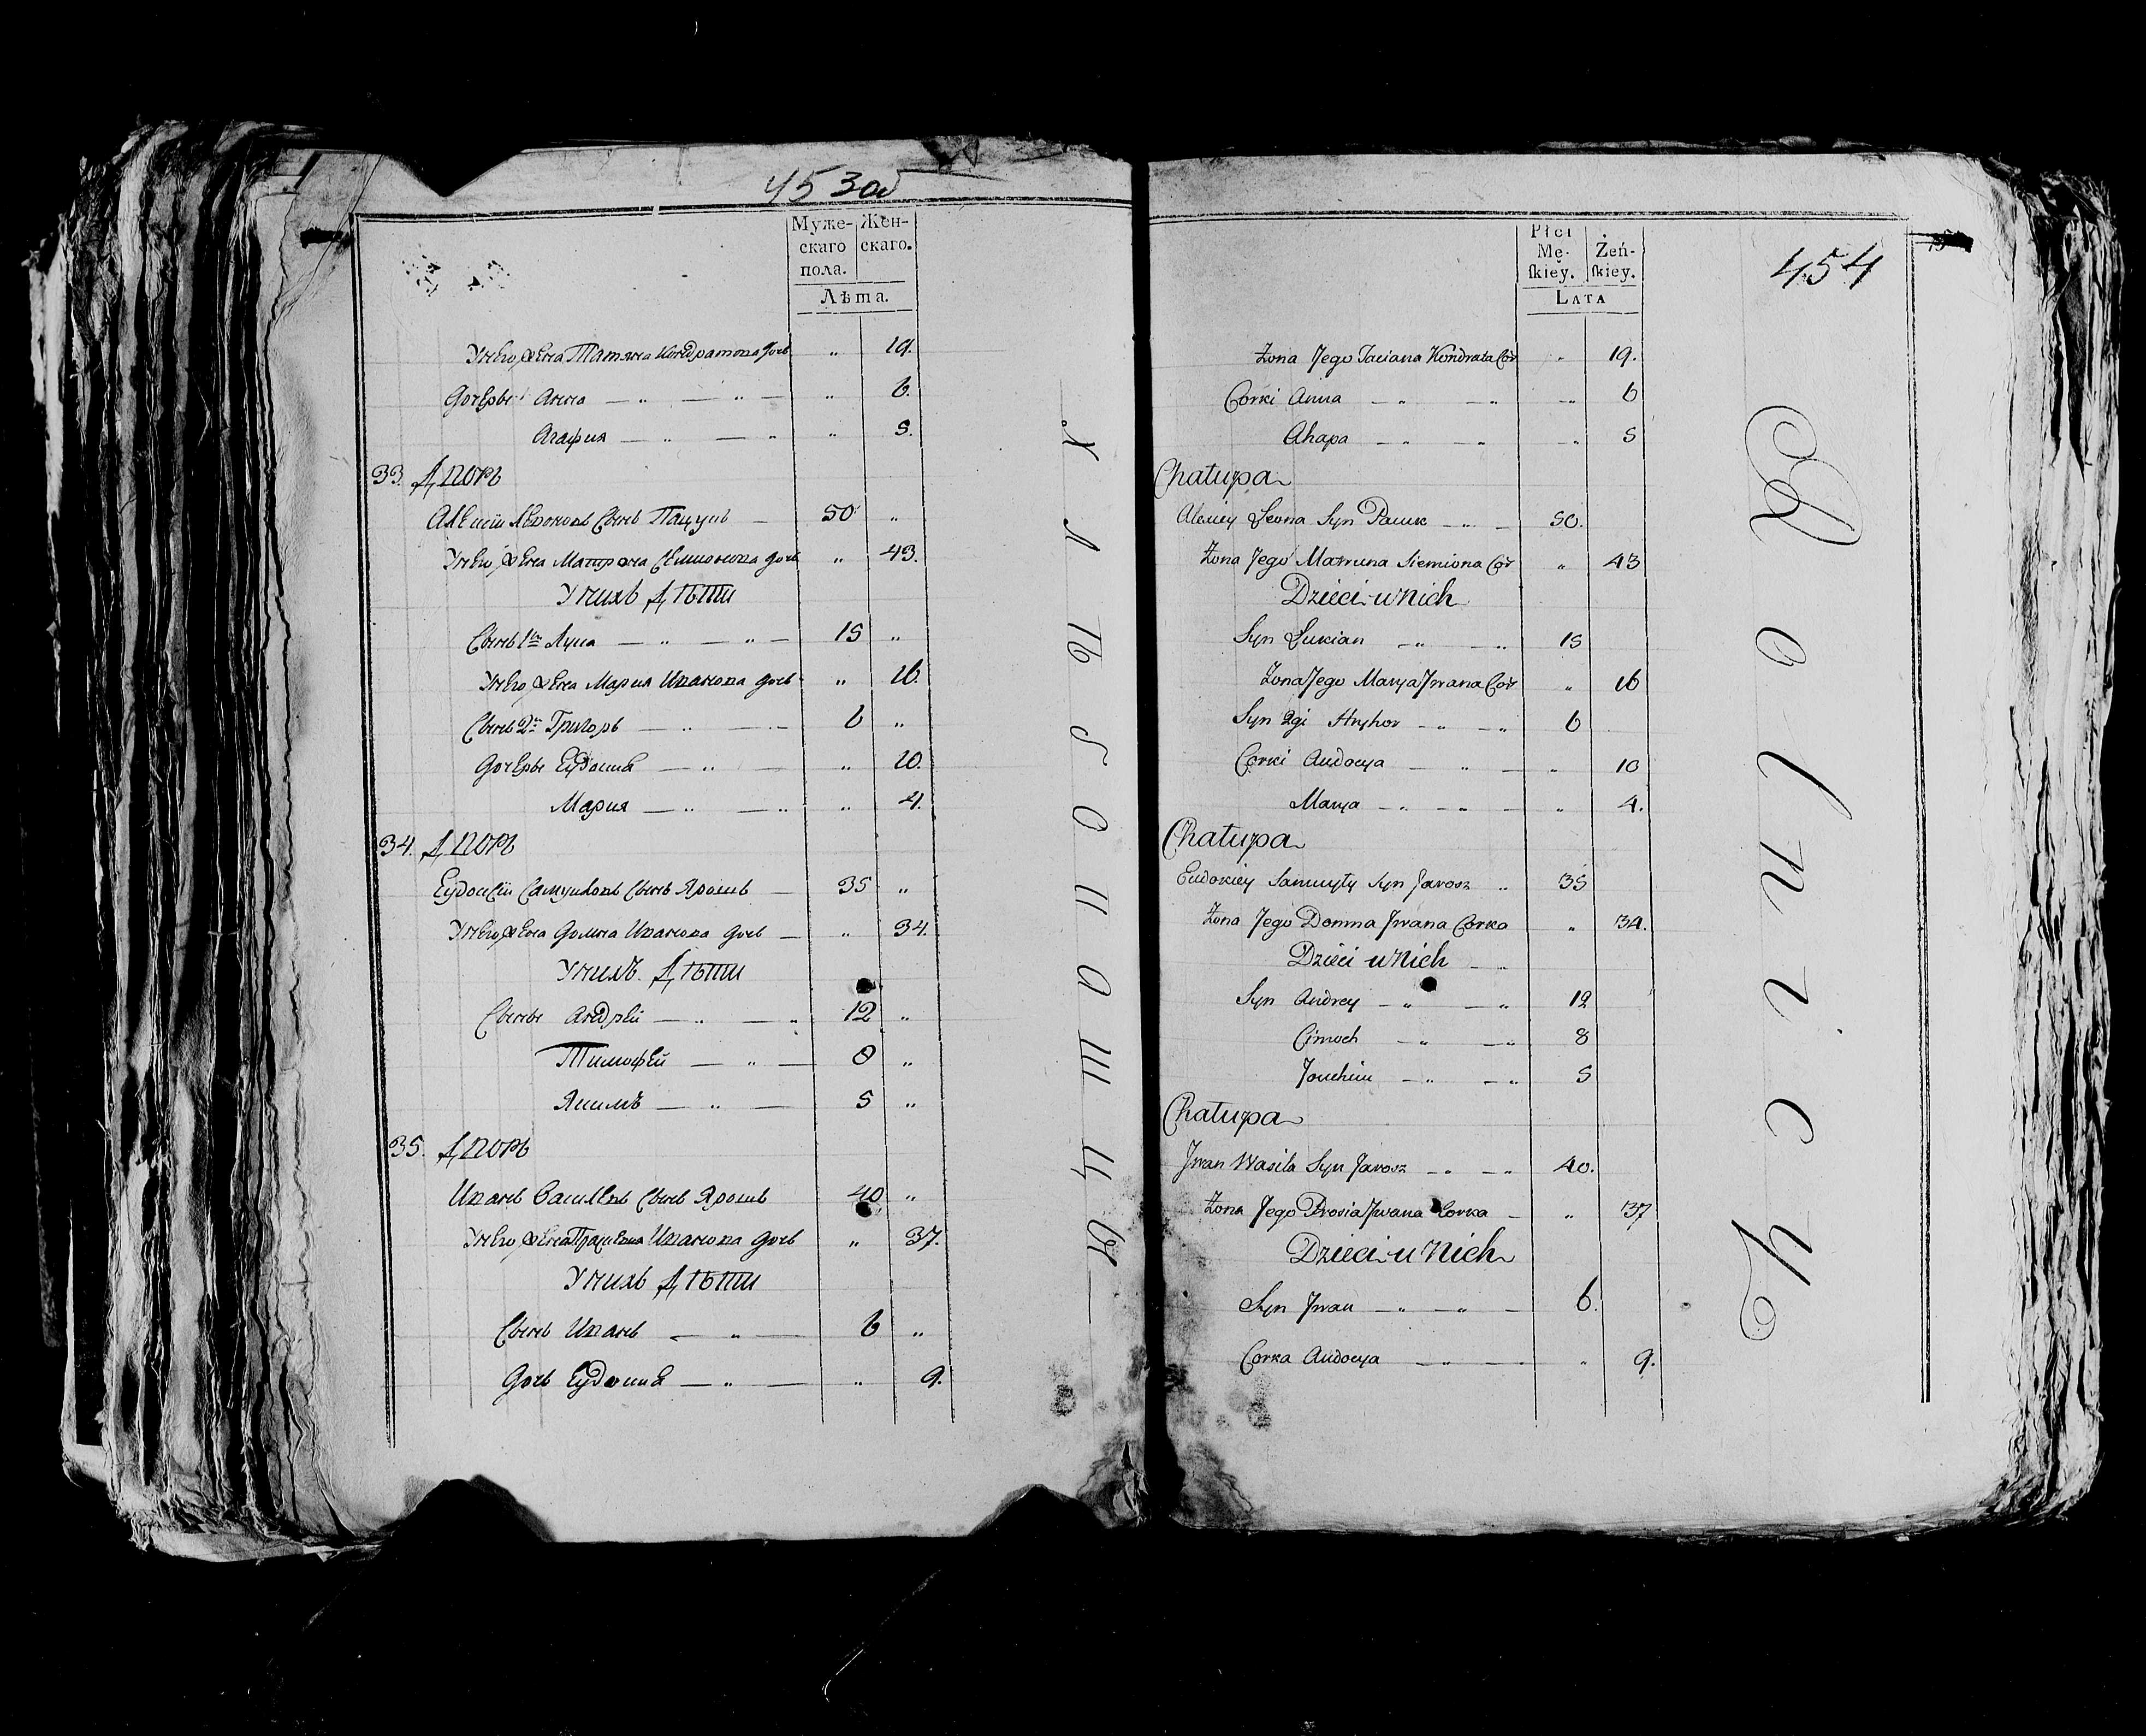 453 об
Муже- Жен-
скаго скаго.
пола.
Лѣта.
У него жена Татяна Кондратова дочь " 19.
Дочери Анна — " — " — " 6.
Агафия — " — " " 5.
33. Дворъ
Алексій Леоновъ сынъ Пацукъ — 50 "
У него жена Матрона Семионова дочь " 43.
У нихъ Дѣти
Сынъ 1й Лука — " — " — 15 "
У него жена Мария Иванова дочь " 16.
Сынъ 2й Григоръ — " — 6 "
Дочери Еудокиа — " — " 10.
Мария — " — " " 4.
34. Дворъ
Еудокій Самуиловъ сынъ Ярошъ — 35 "
У него жена Домна Иванова дочь — " 34.
У нихъ Дѣти
Сыны Андрей — " — " 12 "
Тимофей — " — 8 "
Якимъ — " — 5 "
35. Дворъ
Иванъ Василевъ сынъ Ярошъ 40 "
У него жена Прасковия Иванова дочь " 37.
У нихъ Дѣти
Сынъ Иванъ — " — 6 "
Дочь Еудокиа — " — " 9.
Płci
Mę- Żeń-
ſkiey. ſkiey.
LATA
454
Żona Jego Taciana Kondrata Cór " 19.
Corki Anna — " — " — " 6
Ahapa — " — " — " 5
Chałupa
Alexiey Leona Syn Pacuk — " — 50.
Żona Jego Matruna Siemiona Cór " 43
Dzieci u Nich
Syn Łukian — " — " 15
Żona Jego Marya Jwana Cór " 16
Syn 2gi Hryhor — " — " 6
Corki Audocya — " — " 10
Marya — " — " — " 4.
Chałupa
Eudokiey Samuyły Syn Jarosz " 35
Żona Jego Domna Jwana Corka " 34.
Dzieci u Nich — "
Syn Andrey — " — " 12
Cimoch — " — " 8
Jouchim — " — " 5
Chałupa
Jwan Wasila Syn Jarosz — " — " 40.
Żona Jego Prosia Jwana Corka — " 37
Dzieci u Nich
Syn Jwan — " — " — 6.
Corka Audocya — " — " 9.
Rolnicy